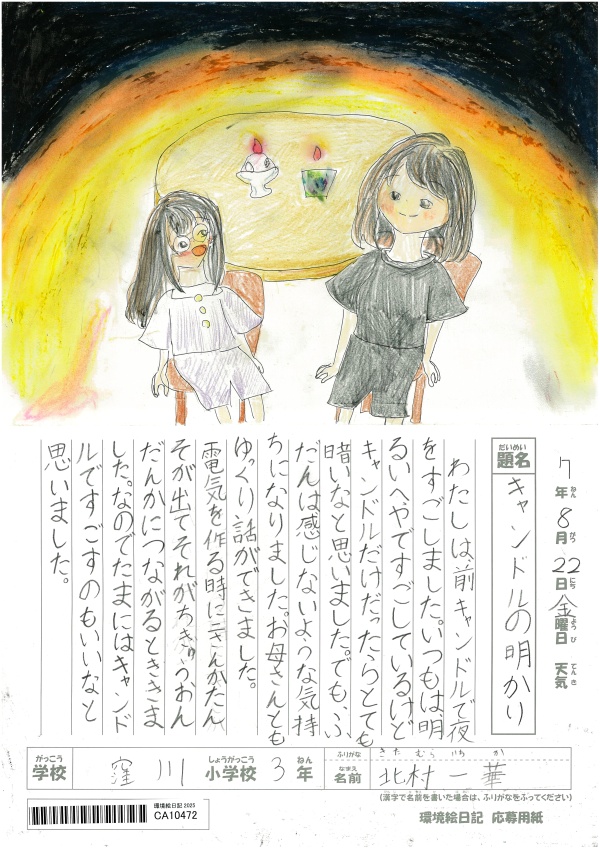 7年8月22日金曜日 天気
ねん がつ にち ようび てんき
だいめい
題名 キャンドルの明かり
わたしは、前キャンドルで夜
をすごしました。いつもは、明
るいへやですごしているけど
キャンドルだけだったらとても
暗いなと思いました。でも、ふ
だんは感じないような気持
ちになりました。お母さんとも
ゆっくり話ができました。
電気を作る時にさんかたん
そが出てそれがちきゅうおん
だんかにつながるとききま
した。なのでたまにはキャンド
ルですごすのもいいなと
思いました。
がっこう しょうがっこう ねん
学校 窪川 小学校 3年
ふりがな きたむら いちか
なまえ
名前 北村一華
(漢字で名前を書いた場合は、ふりがなをふってください)
環境絵日記 2025
CA10472
環境絵日記 応募用紙